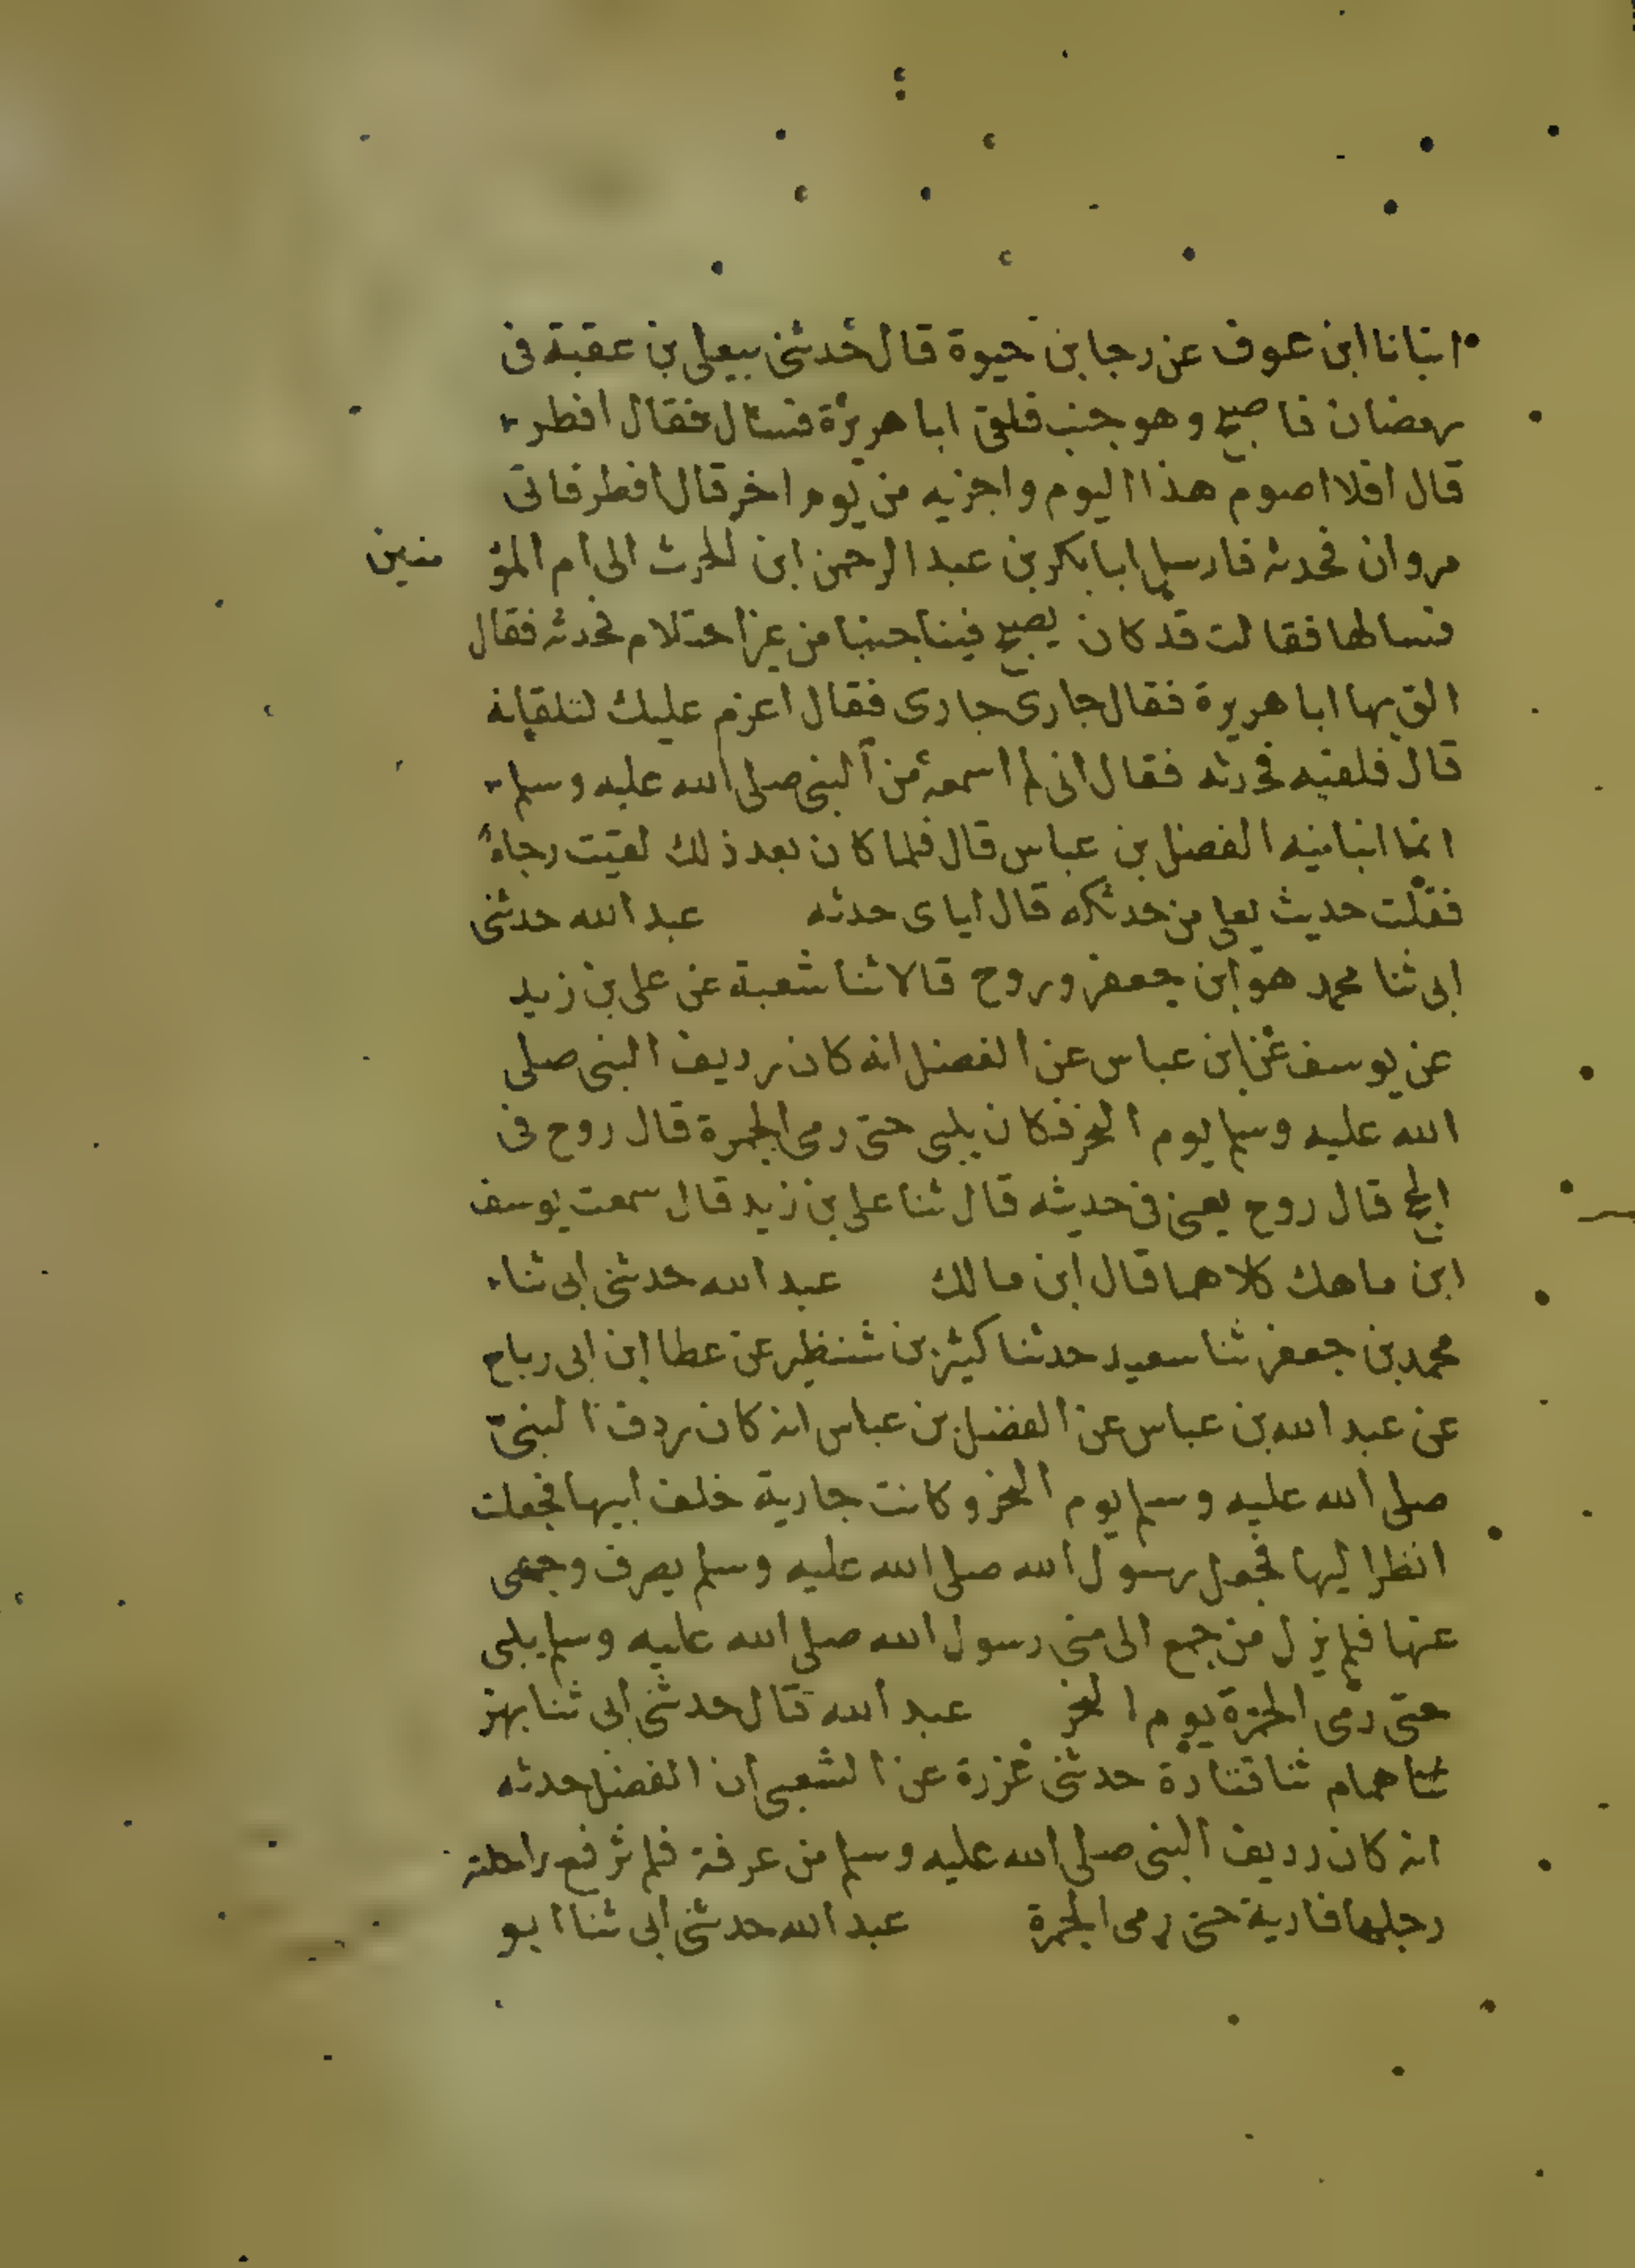 انبانا ابن عوف عن رجا بن حيوة قال حدثنى يعلى بن عقبة فى
رمضان فاصبح وهو جنب فلقى ابا هريرة فسال فقال افطر
قال افلا اصوم هذا اليوم واجزيه من يوم اخر قال افطر فاتى
مروان فحدثه فارسل ابا بكر بن عبد الرحمن ابن الحرث الى ام المؤ منين
فسالها فقالت قد كان يصبح فينا جنبا من غير احتلام فحدثه فقال
الق بها ابا هريرة فقال جارى جارى فقال اعزم عليك لتلقانه
قال فلقيه فحدثه فقال انى لم اسمعه من النبى صلى الله عليه وسلم
انما انبانيه الفضل بن عباس قال فلما كان بعد ذلك لقيت رجاء
فقلت حديث يعلى من حدثكه قال اياى حدثه عبد الله حدثنى
ابى ثنا محمد هو ابن جعفر وروح قالا ثنا شعبة عن على بن زيد
عن يوسف عن ابن عباس عن الفضل انه كان رديف النبى صلى
الله عليه وسلم يوم النحر فكان يلبى حتى رمى الجمرة قال روح فى
الحج قال روح يعنى فى حديثه قال ثنا على بن زيد قال سمعت يوسف
ابن ماهك كلاهما قال ابن مالك عبد الله حدثنى ابى ثنا
محمد بن جعفر ثنا سعيد حدثنا كثير بن شنظير عن عطا ابن ابى رباح
عن عبد الله بن عباس عن الفضل بن عباس انه كان ردف النبى
صلى الله عليه وسلم يوم النحر وكانت جارية خلف ابيها فجعلت
انظر اليها فجعل رسول الله صلى الله عليه وسلم يصرف وجهى
عنها فلم يزل من جمع الى منى رسول الله صلى الله عليه وسلم يلبى
حتى رمى الجمرة يوم النحر عبد الله قال حدثنى ابى ثنا بهز
ثنا همام ثنا قتادة حدثنى عزرة عن الشعبى ان الفضل حدثه
انه كان رديف النبى صلى الله عليه وسلم من عرفة فلم ترفع راحلته
رجلها غادية حتى رمى الجمرة عبد الله حدثنى ابى ثنا ابو